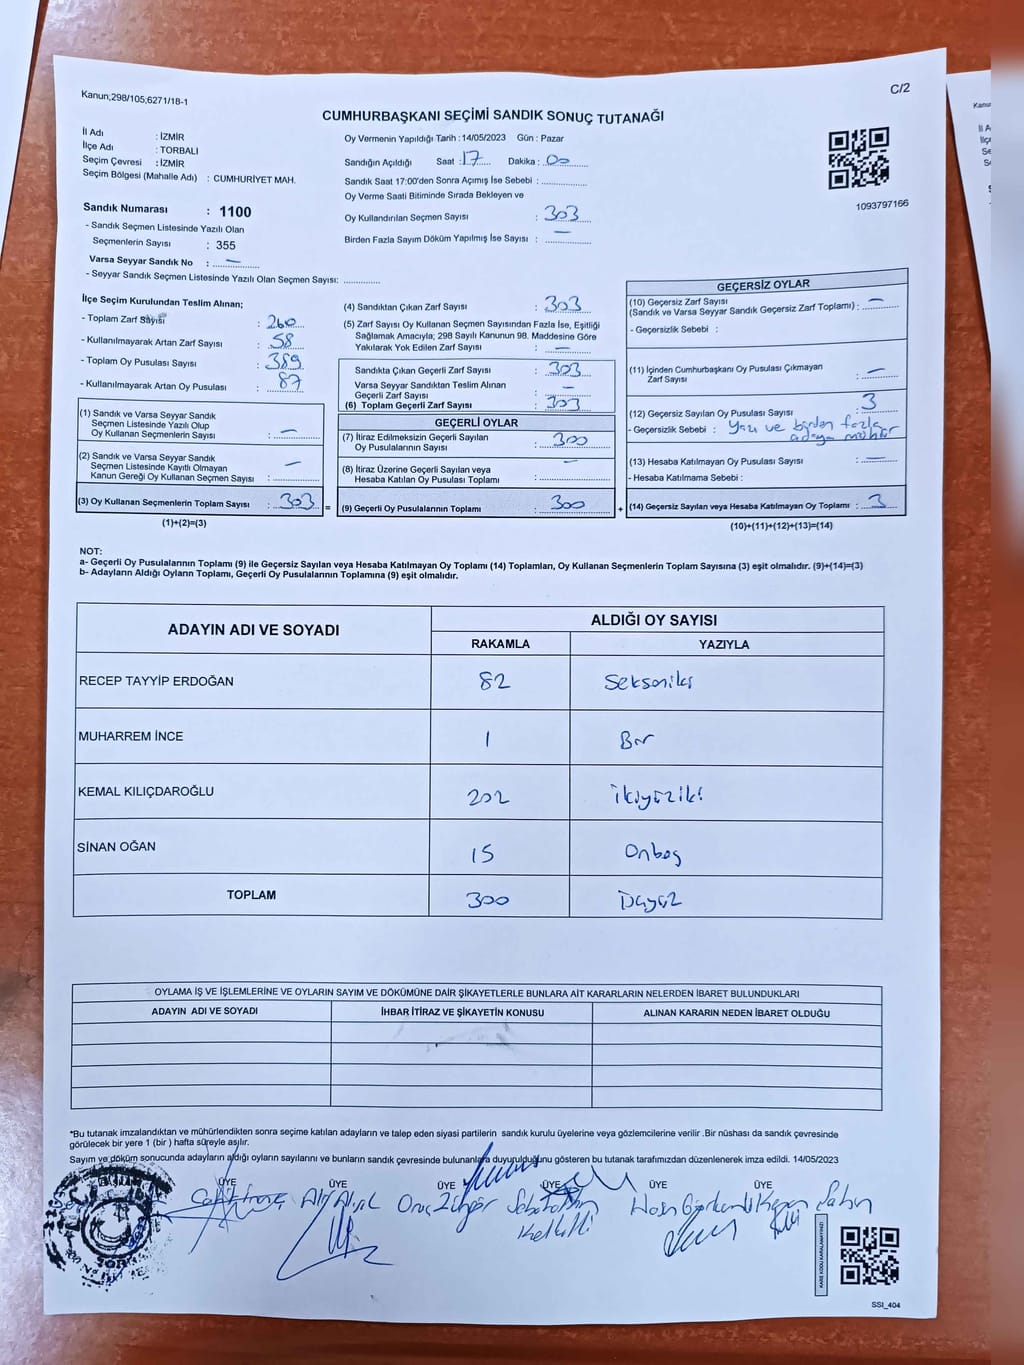 Kanun;298/105,6271/18-1
C/2
CUMHURBAŞKANI SEÇİMİ SANDIK SONUÇ TUTANAĞI
İl Adı : İZMİR
İlçe Adı : TORBALI
Seçim Çevresi : İZMİR
Seçim Bölgesi (Mahalle Adı) : CUMHURİYET MAH.
Sandık Numarası : 1100
- Sandık Seçmen Listesinde Yazılı Olan
Seçmenlerin Sayısı : 355
Varsa Seyyar Sandık No : —
- Seyyar Sandık Seçmen Listesinde Yazılı Olan Seçmen Sayısı: ..............
Oy Vermenin Yapıldığı Tarih : 14/05/2023 Gün : Pazar
Sandığın Açıldığı Saat : 17 Dakika : 00
Sandık Saat 17:00'den Sonra Açımış İse Sebebi : ..............
Oy Verme Saati Bitiminde Sırada Bekleyen ve
Oy Kullandırılan Seçmen Sayısı : 303
Birden Fazla Sayım Döküm Yapılmış İse Sayısı : —
1093797166
İlçe Seçim Kurulundan Teslim Alınan;
- Toplam Zarf Sayısı : 260
- Kullanılmayarak Artan Zarf Sayısı : 58
- Toplam Oy Pusulası Sayısı : 389
- Kullanılmayarak Artan Oy Pusulası : 87
(1) Sandık ve Varsa Seyyar Sandık
Seçmen Listesinde Yazılı Olup
Oy Kullanan Seçmenlerin Sayısı : —
(2) Sandık ve Varsa Seyyar Sandık
Seçmen Listesinde Kayıtlı Olmayan
Kanun Gereği Oy Kullanan Seçmen Sayısı : —
(3) Oy Kullanan Seçmenlerin Toplam Sayısı : 303 =
(1)+(2)=(3)
(4) Sandıktan Çıkan Zarf Sayısı : 303
(5) Zarf Sayısı Oy Kullanan Seçmen Sayısından Fazla İse, Eşitliği
Sağlamak Amacıyla; 298 Sayılı Kanunun 98. Maddesine Göre
Yakılarak Yok Edilen Zarf Sayısı : —
Sandıkta Çıkan Geçerli Zarf Sayısı : 303
Varsa Seyyar Sandıktan Teslim Alınan
Geçerli Zarf Sayısı : —
(6) Toplam Geçerli Zarf Sayısı : 303
GEÇERLİ OYLAR
(7) İtiraz Edilmeksizin Geçerli Sayılan
Oy Pusulasının Sayısı : 300
(8) İtiraz Üzerine Geçerli Sayılan veya
Hesaba Katılan Oy Pusulası Toplamı : —
(9) Geçerli Oy Pusulalarının Toplamı : 300 +
GEÇERSİZ OYLAR
(10) Geçersiz Zarf Sayısı
(Sandık ve Varsa Seyyar Sandık Geçersiz Zarf Toplamı) : —
- Geçersizlik Sebebi :
(11) İçinden Cumhurbaşkanı Oy Pusulası Çıkmayan
Zarf Sayısı : —
(12) Geçersiz Sayılan Oy Pusulası Sayısı : 3
- Geçersizlik Sebebi : Yazı ve birden fazla
adaya mühür
(13) Hesaba Katılmayan Oy Pusulası Sayısı : —
- Hesaba Katılmama Sebebi :
(14) Geçersiz Sayılan veya Hesaba Katılmayan Oy Toplamı : 3
(10)+(11)+(12)+(13)=(14)
NOT:
a- Geçerli Oy Pusulalarının Toplamı (9) ile Geçersiz Sayılan veya Hesaba Katılmayan Oy Toplamı (14) Toplamları, Oy Kullanan Seçmenlerin Toplam Sayısına (3) eşit olmalıdır. (9)+(14)=(3)
b- Adayların Aldığı Oyların Toplamı, Geçerli Oy Pusulalarının Toplamına (9) eşit olmalıdır.
ADAYIN ADI VE SOYADI ALDIĞI OY SAYISI
RAKAMLA YAZIYLA
RECEP TAYYİP ERDOĞAN 82 Sekseniki
MUHARREM İNCE 1 Bir
KEMAL KILIÇDAROĞLU 202 ikiyüziki
SİNAN OĞAN 15 Onbeş
TOPLAM 300 üçyüz
OYLAMA İŞ VE İŞLEMLERİNE VE OYLARIN SAYIM VE DÖKÜMÜNE DAİR ŞİKAYETLERLE BUNLARA AİT KARARLARIN NELERDEN İBARET BULUNDUKLARI
ADAYIN ADI VE SOYADI İHBAR İTİRAZ VE ŞİKAYETİN KONUSU ALINAN KARARIN NEDEN İBARET OLDUĞU
*Bu tutanak imzalandıktan ve mühürlendikten sonra seçime katılan adayların ve talep eden siyasi partilerin sandık kurulu üyelerine veya gözlemcilerine verilir .Bir nüshası da sandık çevresinde
görülecek bir yere 1 (bir ) hafta süreyle asılır.
Sayım ve döküm sonucunda adayların aldığı oyların sayılarını ve bunların sandık çevresinde bulunanlara duyurulduğunu gösteren bu tutanak tarafımızdan düzenlenerek imza edildi. 14/05/2023
BAŞKAN ÜYE ÜYE ÜYE ÜYE ÜYE ÜYE
KARE KODU KARALAMAYINIZ!
SSI_404